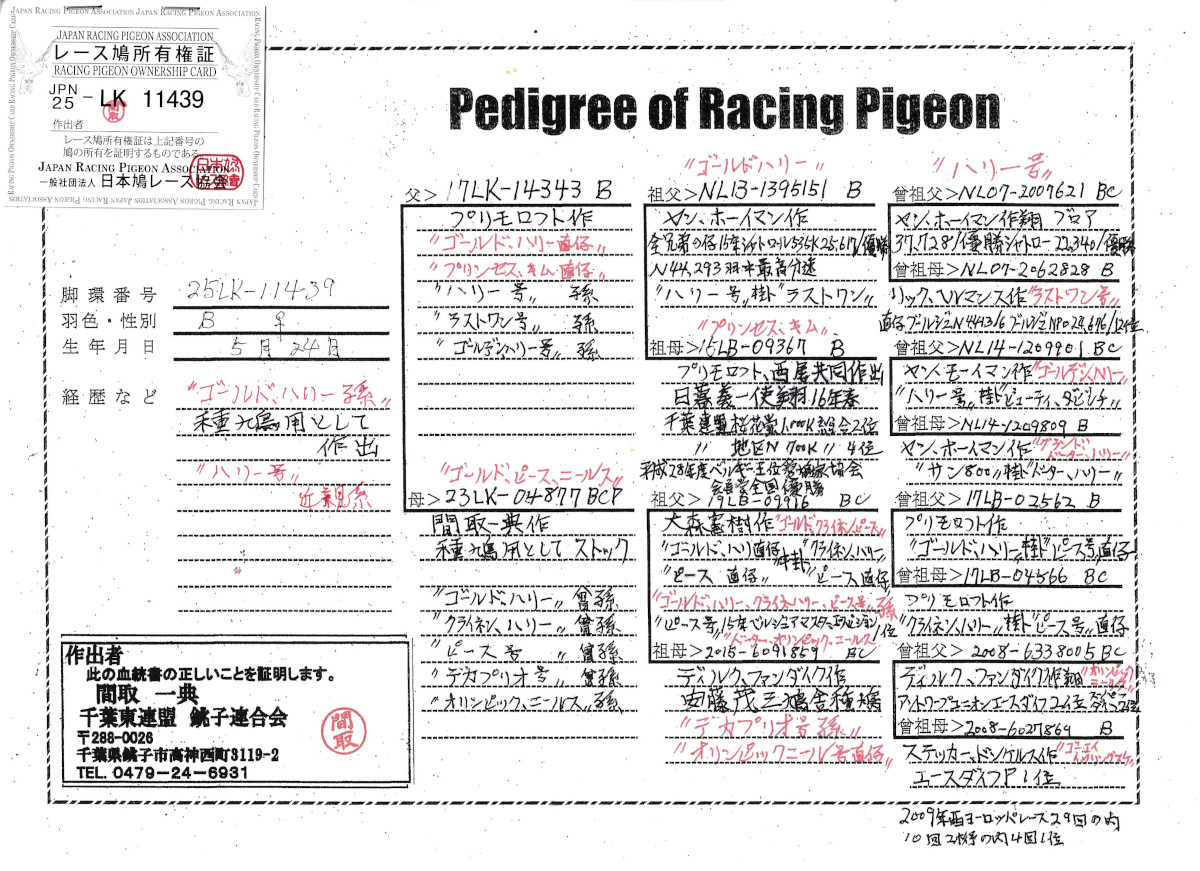 JAPAN RACING PIGEON ASSOCIATION
レース鳩所有権証
RACING PIGEON OWNERSHIP CARD
JPN
25 - LK 11439
作出者
レース鳩所有権証は上記番号の
鳩の所有を証明するものである
JAPAN RACING PIGEON ASSOCIATION
一般社団法人 日本鳩レース協会
Pedigree of Racing Pigeon
脚環番号 25LK-11439
羽色・性別 B ♀
生年月日 5月24日
経歴など
"ゴールド、ハリー孫"
種鳩用として
作出
"ハリー号"
近親系
作出者
此の血統書の正しいことを証明します。
間取 一典
千葉東連盟 銚子連合会
〒288-0026
千葉県銚子市高神西町3119-2
TEL. 0479-24-6931
間取
父>17LK-14343 B
プリモロフト作
"ゴールド、ハリー直仔"
"プリンセス、キム直仔"
"ハリー号" 孫
"ラストワン号" 孫
"ゴールデンハリー号" 孫
"ゴールド、ピース、ニールス"
母>23LK-04877 BCP
間取一典作
種鳩用として ストック
"ゴールド、ハリー" 曾孫
"クライネン、ハリー" 曾孫
"ピース号" 曾孫
"デカプリオ号" 曾孫
"オリンピック、ニールス" 孫
"ゴールドハリー"
祖父>NL13-1395151 B
ヤン、ホーイマン作
全兄弟の仔15年シャトロール535K25,617/優勝
N44,293羽中最高分速
"ハリー号"掛"ラストワン"
"プリンセス、キム"
祖母>15LB-09367 B
プリモロフト、西尾共同作出
日暮義一使翔16年春
千葉連盟桜花賞1,000K総合2位
" 地区N700K" 4位
平成28年度ベルギー王位賞
会員賞全国優勝
祖父>19LB-09916 BC
大森憲樹作"ゴールドクライネンピース"
"ゴールド、ハリ直仔" 掛 "クライネン、ハリー"
"ピース 直仔" "ピース直仔
"ゴールド、ハリー、クライネ、ハリー、ピース号"孫
"ピース号"15年ベルジュアマスターエボリション1位
"ドーター、オリンピック、ニールス"
祖母>2015-6091859 BC
ディルク、ファンダイク作
安藤茂三鳩舎種鳩
"デカプリオ号孫"
"オリンピックニール号直仔"
"ハリー号"
曾祖父>NL07-2009621 BC
ヤン、ホーイマン作翔 ブロア
37,728/優勝シャトロー22,340/優勝
曾祖母>NL07-2062828 B
リック、ヘルマンス作"ラストワン号"
直仔ブルジェN4413/6ブルジェNPO24,676/12位
曾祖父>NL14-1209901 BC
ヤン、ホーイマン作"ゴールデンハリー"
"ハリー号"掛"ビューティ、ダビンチ"
曾祖母>NL14-1209809 B
ヤン、ホーイマン作"グランド
ドーター、ハリー"
"サン800"掛"ドーター、ハリー"
曾祖父>17LB-02562 B
プリモロフト作
"ゴールド、ハリー"掛"ピース号"直仔
曾祖母>17LB-04566 BC
プリモロフト作
"クライネン、ハリー"掛"ピース号"直仔
曾祖父>2008-6338005 BC
ディルク、ファンダイク作翔"オリンピック
ニールス"
アントワープユニオンエースダイフ2位
曾祖母>2008-6027869 B
ステッカー、ドンケルス作
エースダイフP1位
2009年西ヨーロッパレース29回の内
10回2桁の内4回1位